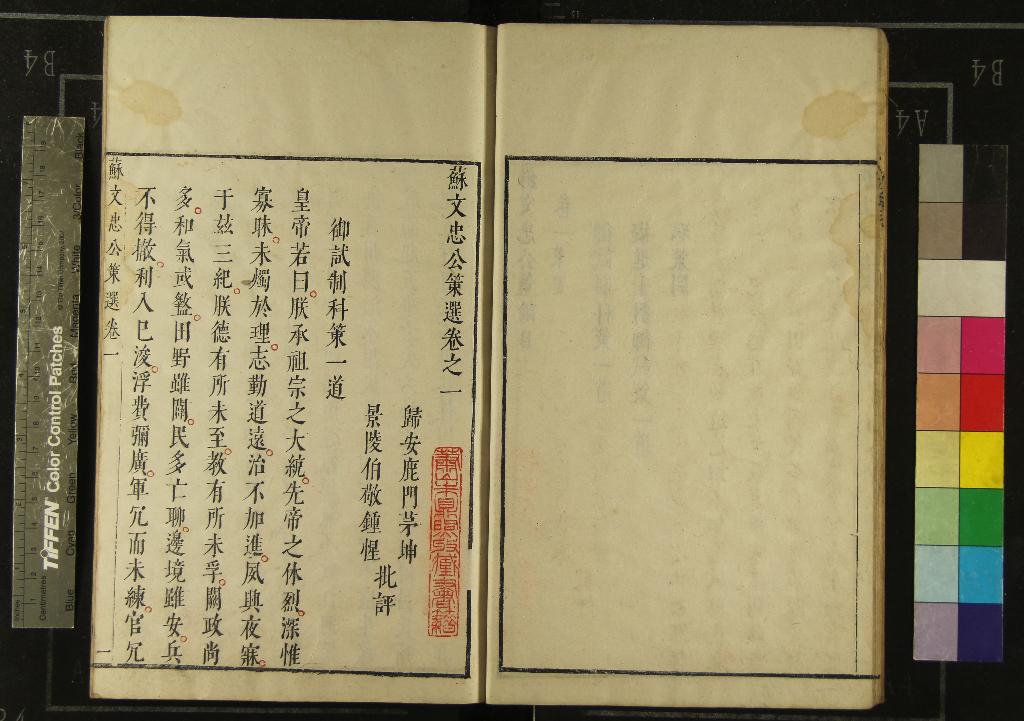 蘇文忠公策選卷之一
歸安鹿門茅坤
景陵伯敬鍾惺
批評
御試制科策一道
皇帝若曰朕承祖宗之大統先帝之休烈深惟
寡昧未燭於理志勤道遠治不加進夙興夜寐
于茲三紀朕德有所未至教有所未孚闕政尚
多和氣或盭田野雖闢民多亡聊邊境雖安兵
不得撤利入已浚浮費彌廣軍冗而未練官冗
蘇文忠公策選卷一
一
TIFFEN Color Control Patches
Blue
Cyan
Green
Yellow
Red
Magenta
White
3/Color
Black
Centimetres
Inches
B4
A4
B4
A4